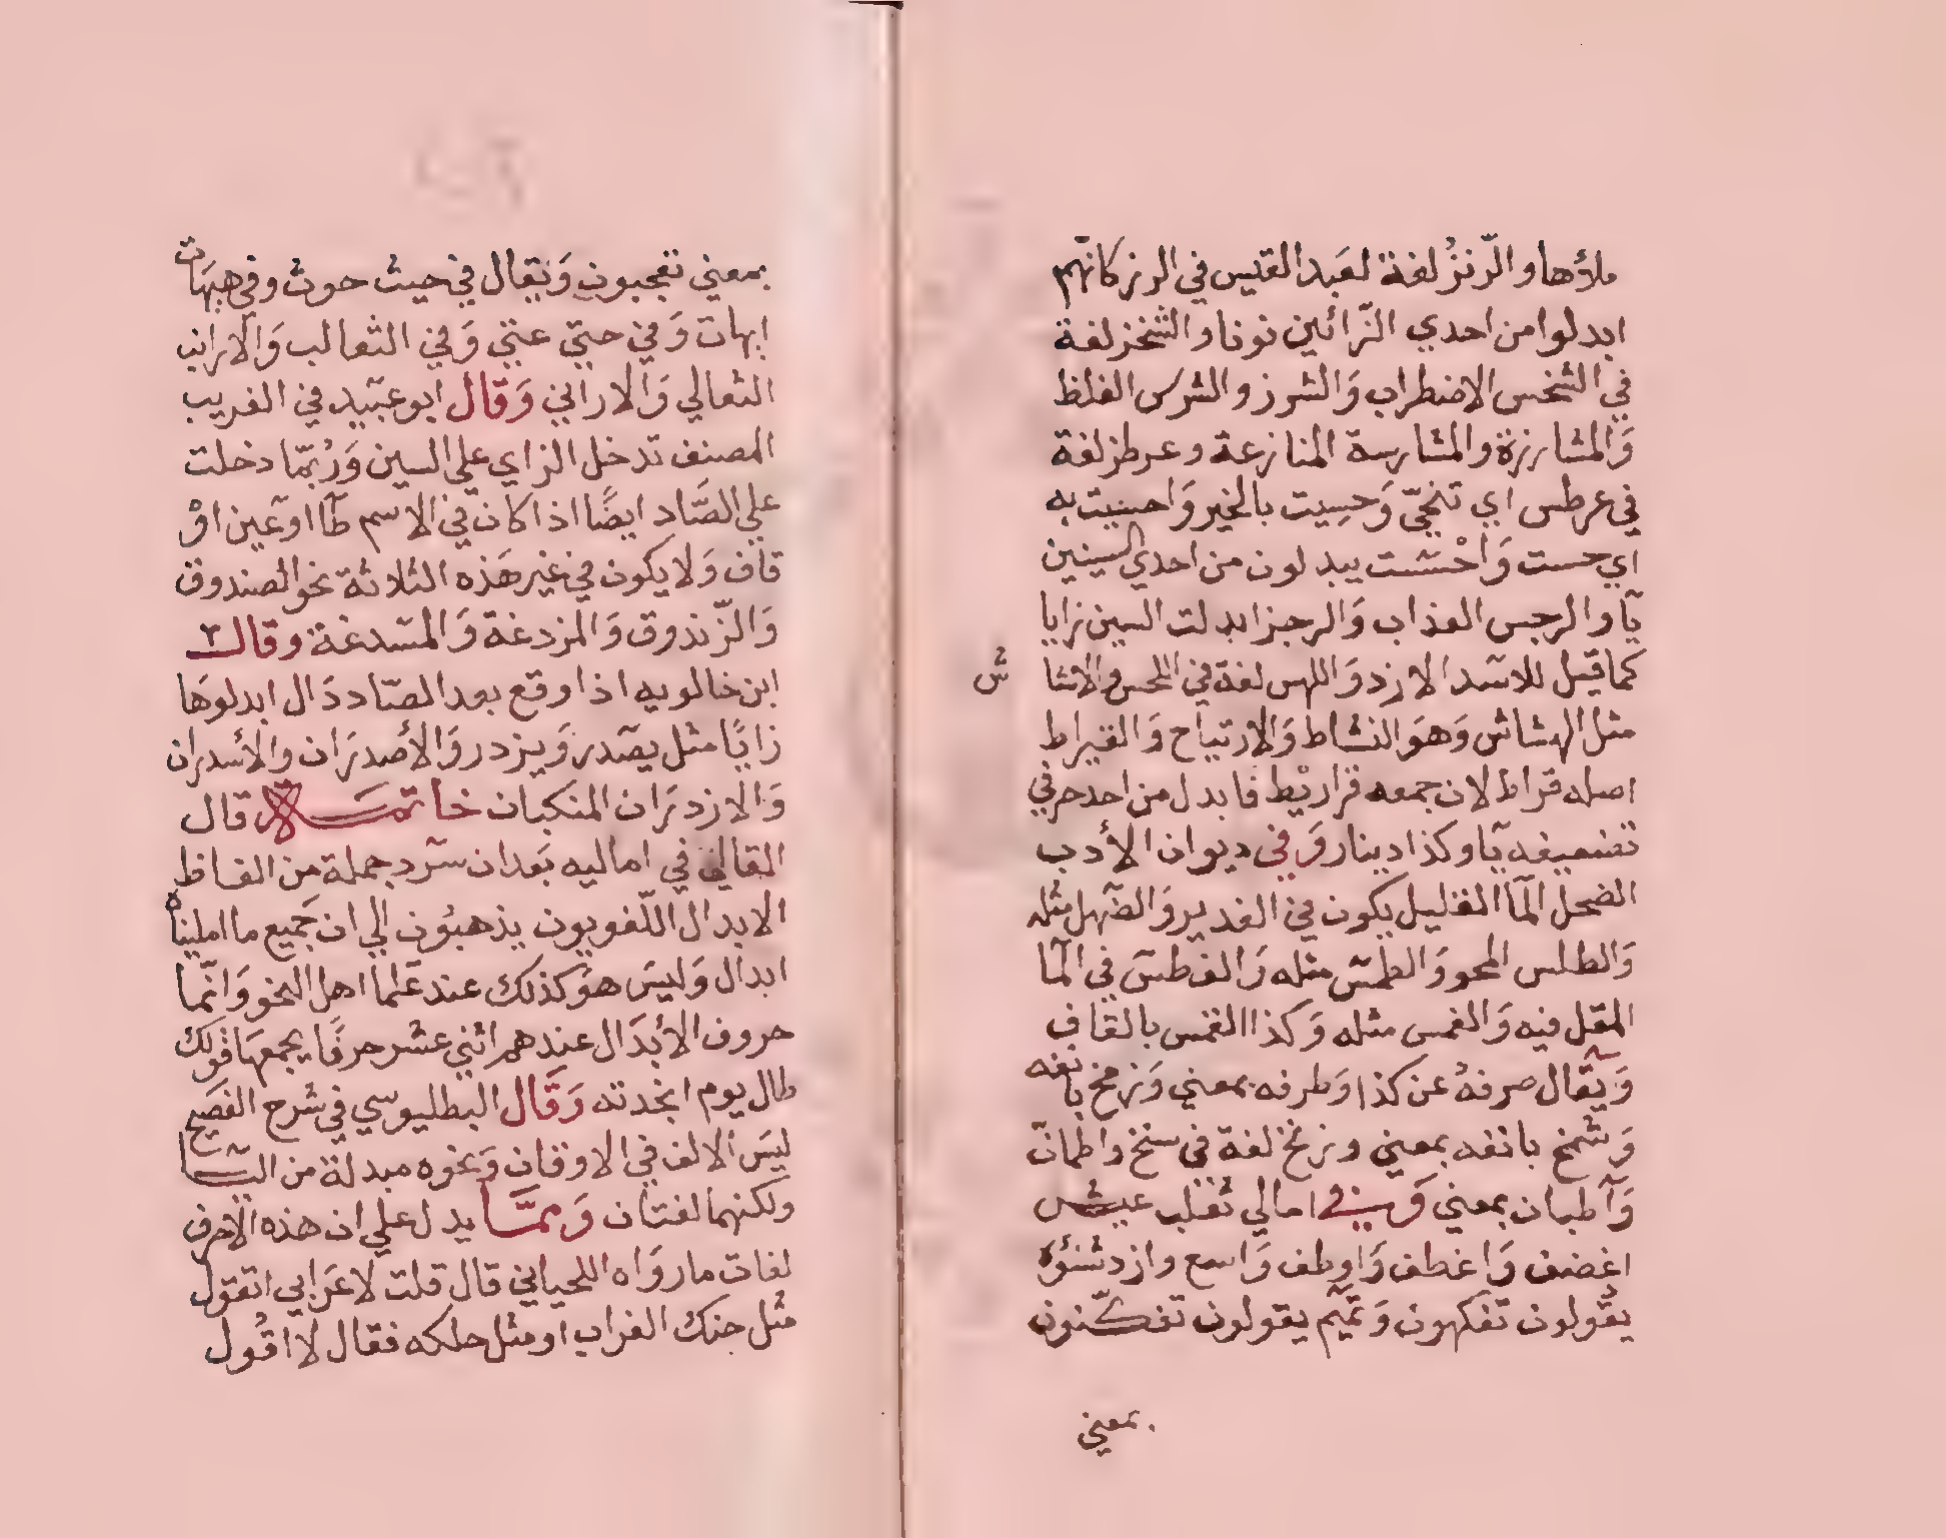 ملاؤها والرّنزُ لغة لعَبد القيس في الرز كانّهم
ابدلوا من احدي الزّائين نونا والشخز لغة
في الشخس الاضطراب وَالشرز والشرس الغلظ
وَالمشارزة والمشارسة المنازعة وعرطز لغة
في عرطس اي تنحّي وَحسِيت بالخير وَاحسيت به
اي حسست وَاحْسَست يبدلون من احدي السينين
يآ والرجس العذاب وَالرجز ابدلت السين زايا
كما قيل للاسد الازد وَاللهس لغة في اللحس والاشا
ش
مثل الهشاش وَهوَ النشاط وَالارتياح وَالقيراط
اصله قراط لان جمعه قراريْط فابدل من احد حرفي
تضعيفه يآ وكذا دينار وَفي ديوان الأدب
الضحل المآ القليل يكون في الغدير وَالضهل مثله
وَالطلس المحو وَالطمس مثله وَالغطس في المآ
المقل فيه وَالغمس مثله وَكذا القمس بالقاف
وَيقال صرفهُ عن كذا وَطرفه بمعني وَزمخ بانفه
وَشمخ بانفه بمعني وزنخ لغة في سنخ واطمانّ
وَآطبان بمعني وَفي امالي ثعلب عيش
اغضف وَاغطف وَاوطف وَاسع وازد شنؤه
يقُولون تفكهون وَتميم يقولون تفكّنون
بمعني
بمعني تعجبون وَيقال في حيث حوث وفي هيهَات
ايهات وَفي حتي عتي وَفي الثعالب وَالارانب
الثعالي وَالاراني وَقال ابو عبيد في الغريب
المصنف تدخل الزاي علي السين وَرُبّما دخلت
علي الصَّاد ايضًا اذا كان في الاسم طآ او عين اوْ
قاف وَلا يكون في غير هَذه الثلاثة نحو الصندوق
وَالزّندوق وَالمزدغة وَالمسَدغة وقال
ابن خالويه اذا وقع بعد الصّاد دَال ابدلوهَا
زايًا مثل يصَدر وَيزدر وَالأصدرَان والأسدران
وَالازدرَان المنكبان خاتمَــة قال
القالي في اماليه بَعد ان سَرد جملة من الفاظ
الابدال اللّغويون يذهبُون الي ان جَميع ما امليناهُ
ابدال وَليسَ هوَ كذلك عند عَلما اهل النحو وَانّما
حروف الأبدَال عندهم اثني عشر حرفًا يجمعهَا قولك
طال يوم انجدته وَقَال البطليوسي في شرح الفصَيح
ليسَ الالف في الاوقات وَنحوه مبدلة من اليآ
ولكنهما لغتان وَممَّا يدل علي ان هذه الاحرف
لغات ما روَاه اللحياني قال قلت لاعرَابي اتقول
مثل حنك الغراب او مثل حلكه فقال لا اقُول